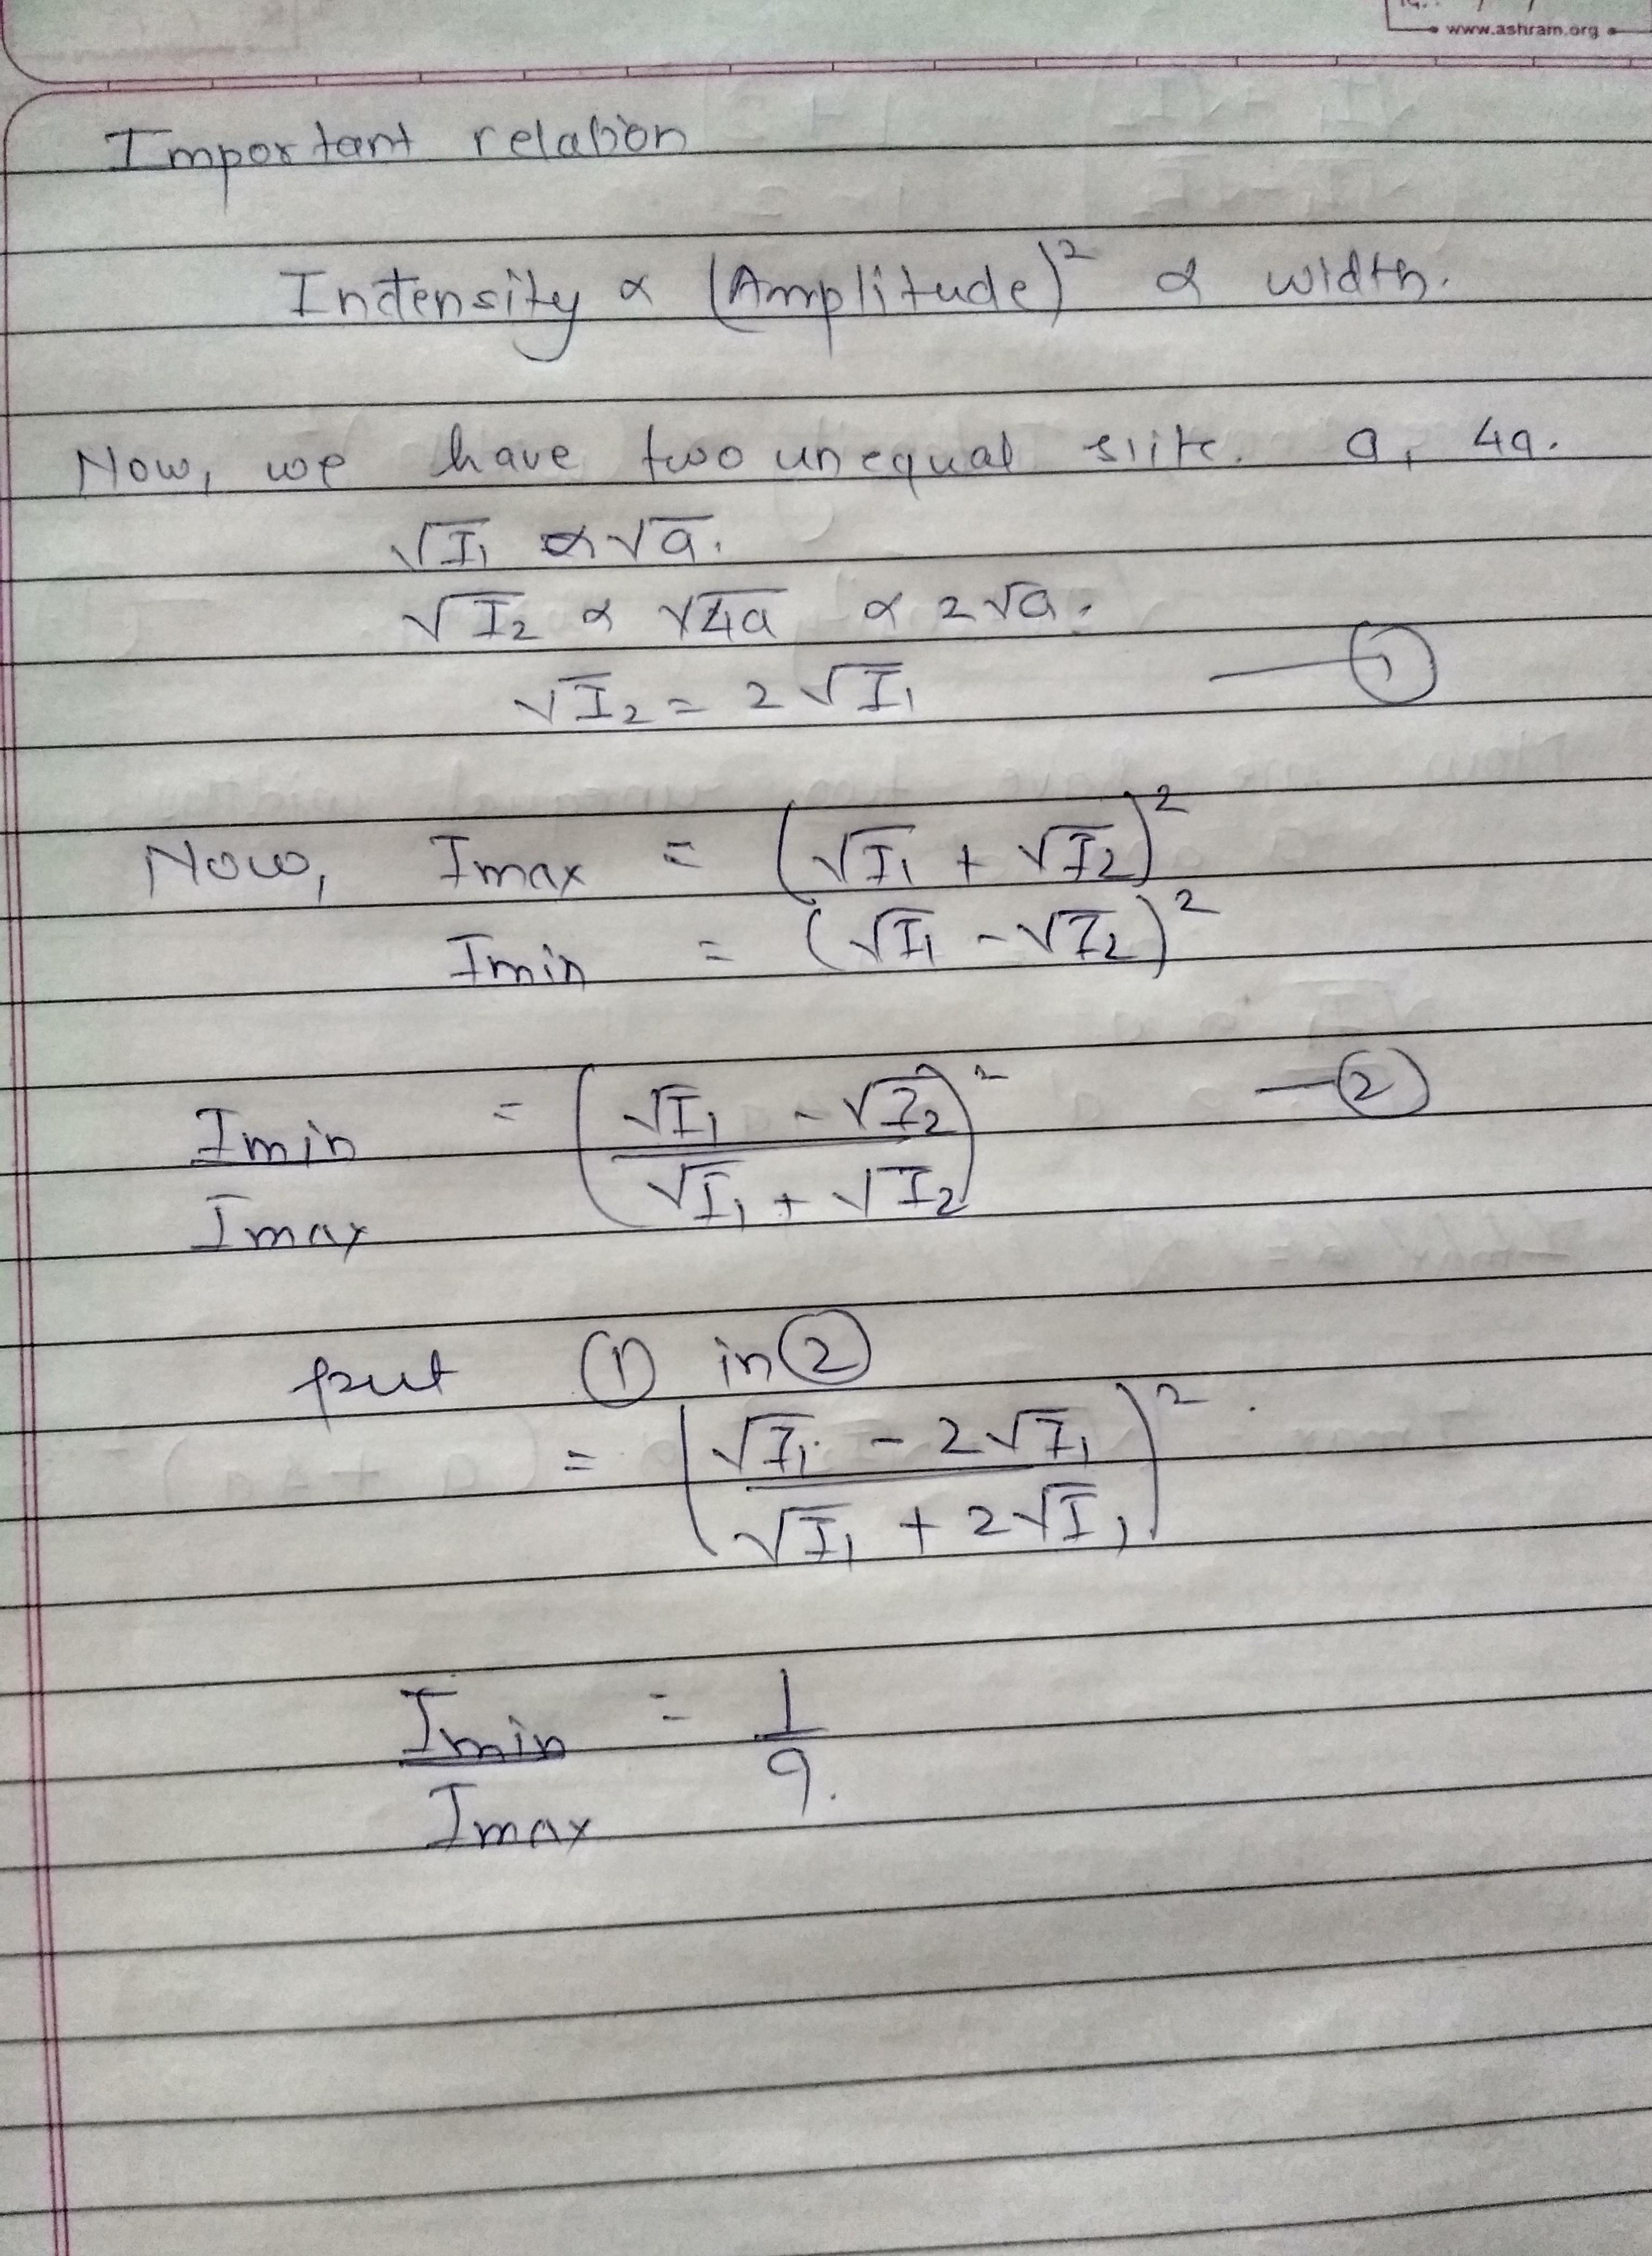 www.ashram.org
Important relation
Intensity ∝ (Amplitude)² ∝ width.
Now, we have two unequal slits. a, 4a.
√I₁ ∝ √a.
√I₂ ∝ √4a ∝ 2√a.
√I₂ = 2√I₁ —①
Now, Imax = (√I₁ + √I₂)²
Imin = (√I₁ - √I₂)²
Imin/Imax = ((√I₁ - √I₂)/(√I₁ + √I₂))² —②
put ① in ②
= ((√I₁ - 2√I₁)/(√I₁ + 2√I₁))².
Imin/Imax = 1/9.